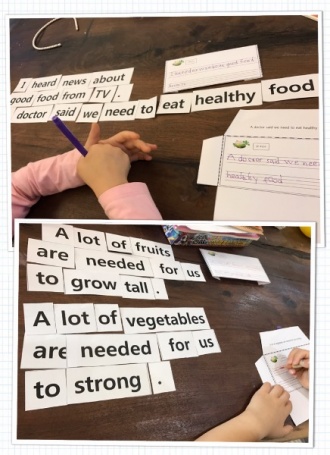 I heard news about
good food from TV .
doctor said we need to eat healthy food
A doctor said we need to eat healthy
A doctor said we nee
healthy food
A lot of fruits
are needed for us
to grow tall .
A lot of vegetables
are needed for us
to strong .